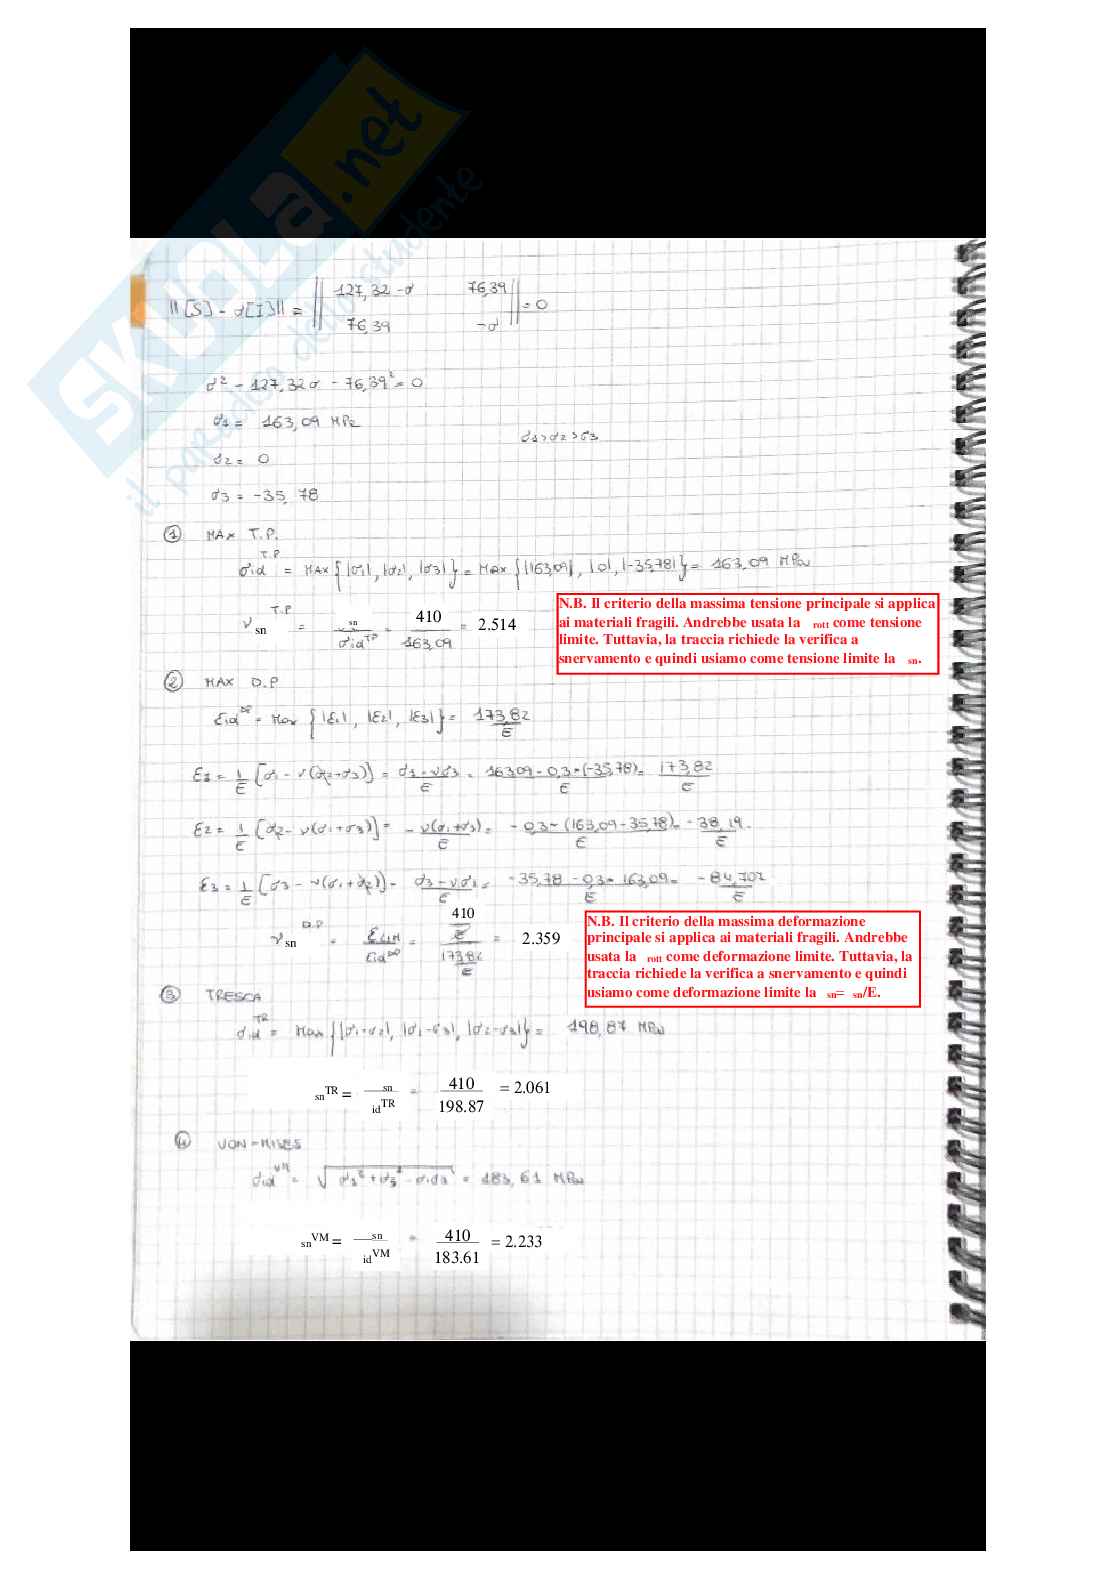 SKUOLA.net
il paradiso dello studente
||[S] - σ[I]|| = || 127,32 -σ   76,39 || = 0
76,39   -σ
σ² - 127,32σ - 76,39² = 0
σ1 = 163,09 MPa
σ1>σ2>σ3
σ2 = 0
σ3 = -35,78
① MAX T.P.
σid^T.P. = MAX{|σ1|, |σ2|, |σ3|} = MAX{|163,09|, |0|, |-35,78|} = 163,09 MPa
N.B. Il criterio della massima tensione principale si applica
ai materiali fragili. Andrebbe usata la rott come tensione
limite. Tuttavia, la traccia richiede la verifica a
snervamento e quindi usiamo come tensione limite la sn.
ν sn^T.P = sn / σid^TP = 410 / 163,09 = 2.514
② MAX D.P
εid^DP = Max{|ε1|, |ε2|, |ε3|} = 173,82 / E
ε1 = 1/E [σ1 - ν(σ2+σ3)] = σ1-νσ3 / E = 163,09 - 0,3*(-35,78) / E = 173,82 / E
ε2 = 1/E [σ2 - ν(σ1+σ3)] = -ν(σ1+σ3) / E = -0,3*(163,09-35,78) / E = -38,19 / E
ε3 = 1/E [σ3 - ν(σ1+σ2)] = σ3-νσ1 / E = -35,78 - 0,3*163,09 / E = -84,707 / E
ν sn^D.P = εLIM / εid^DP = 410/E / 173,82/E = 2.359
N.B. Il criterio della massima deformazione
principale si applica ai materiali fragili. Andrebbe
usata la rott come deformazione limite. Tuttavia, la
traccia richiede la verifica a snervamento e quindi
usiamo come deformazione limite la sn= sn/E.
③ TRESCA
σid^TR = Max{|σ1-σ2|, |σ1-σ3|, |σ2-σ3|} = 198,87 MPa
sn^TR = sn / id^TR = 410 / 198.87 = 2.061
④ VON-MISES
σid^VM = √σ1²+σ3²-σ1σ3 = 183,61 MPa
sn^VM = sn / id^VM = 410 / 183.61 = 2.233